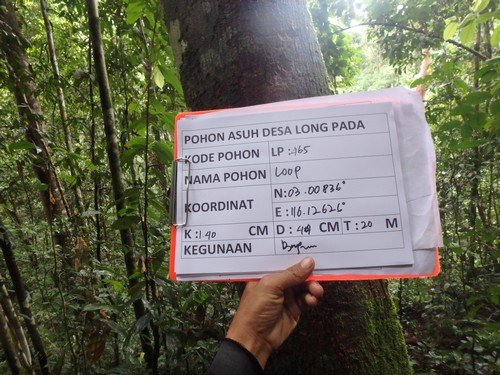 POHON ASUH DESA LONG PADA
KODE POHON LP: 465
NAMA POHON LOOP
KOORDINAT N: 03.00836°
E: 116.12626°
K: 140 CM D: 44 CM T: 20 M
KEGUNAAN